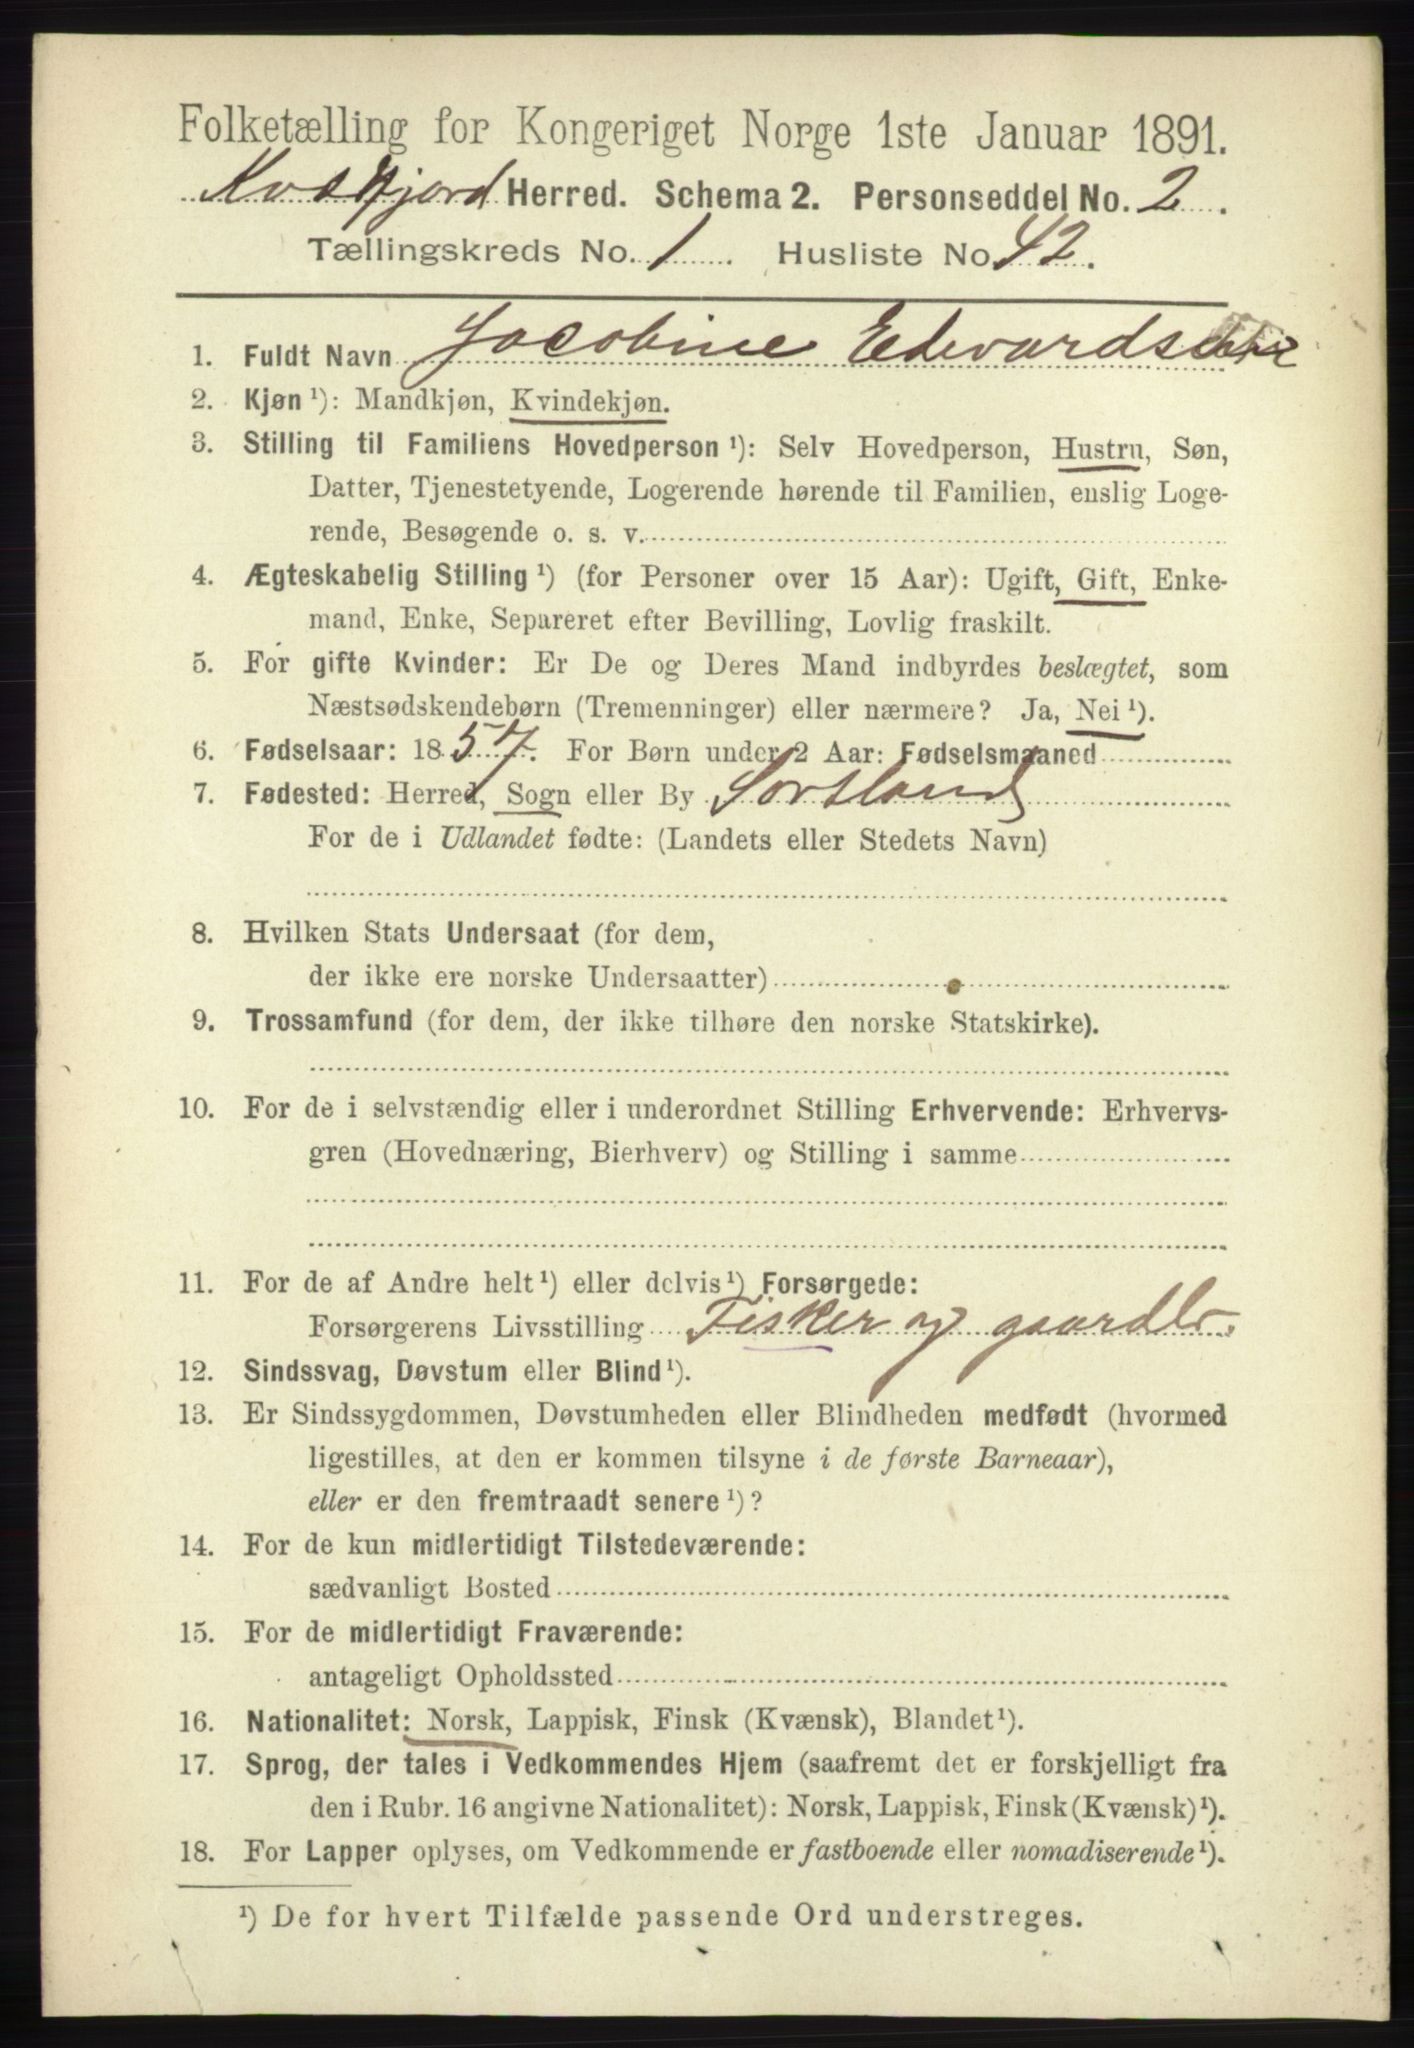 Folketælling for Kongeriget Norge 1ste Januar 1891.
Kvæfjord Herred. Schema 2. Personseddel No. 2.
Tællingskreds No. 1. Husliste No. 42.
1. Fuldt Navn Jacobine Edvardsdatter
2. Kjøn ¹): Mandkjøn, Kvindekjøn.
3. Stilling til Familiens Hovedperson ¹): Selv Hovedperson, Hustru, Søn,
Datter, Tjenestetyende, Logerende hørende til Familien, enslig Loge-
rende, Besøgende o. s. v.
4. Ægteskabelig Stilling ¹) (for Personer over 15 Aar): Ugift, Gift, Enke-
mand, Enke, Separeret efter Bevilling, Lovlig fraskilt.
5. For gifte Kvinder: Er De og Deres Mand indbyrdes beslægtet, som
Næstsødskendebørn (Tremenninger) eller nærmere? Ja, Nei ¹).
6. Fødselsaar: 1857. For Børn under 2 Aar: Fødselsmaaned
7. Fødested: Herred, Sogn eller By Sortland
For de i Udlandet fødte: (Landets eller Stedets Navn)
8. Hvilken Stats Undersaat (for dem,
der ikke ere norske Undersaatter)
9. Trossamfund (for dem, der ikke tilhøre den norske Statskirke).
10. For de i selvstændig eller i underordnet Stilling Erhvervende: Erhvervs-
gren (Hovednæring, Bierhverv) og Stilling i samme
11. For de af Andre helt ¹) eller delvis ¹) Forsørgede:
Forsørgerens Livsstilling Fisker og gaardbr.
12. Sindssvag, Døvstum eller Blind ¹).
13. Er Sindssygdommen, Døvstumheden eller Blindheden medfødt (hvormed
ligestilles, at den er kommen tilsyne i de første Barneaar),
eller er den fremtraadt senere ¹)?
14. For de kun midlertidigt Tilstedeværende:
sædvanligt Bosted
15. For de midlertidigt Fraværende:
antageligt Opholdssted
16. Nationalitet: Norsk, Lappisk, Finsk (Kvænsk), Blandet ¹).
17. Sprog, der tales i Vedkommendes Hjem (saafremt det er forskjelligt fra
den i Rubr. 16 angivne Nationalitet): Norsk, Lappisk, Finsk (Kvænsk) ¹).
18. For Lapper oplyses, om Vedkommende er fastboende eller nomadiserende ¹).
¹) De for hvert Tilfælde passende Ord understreges.